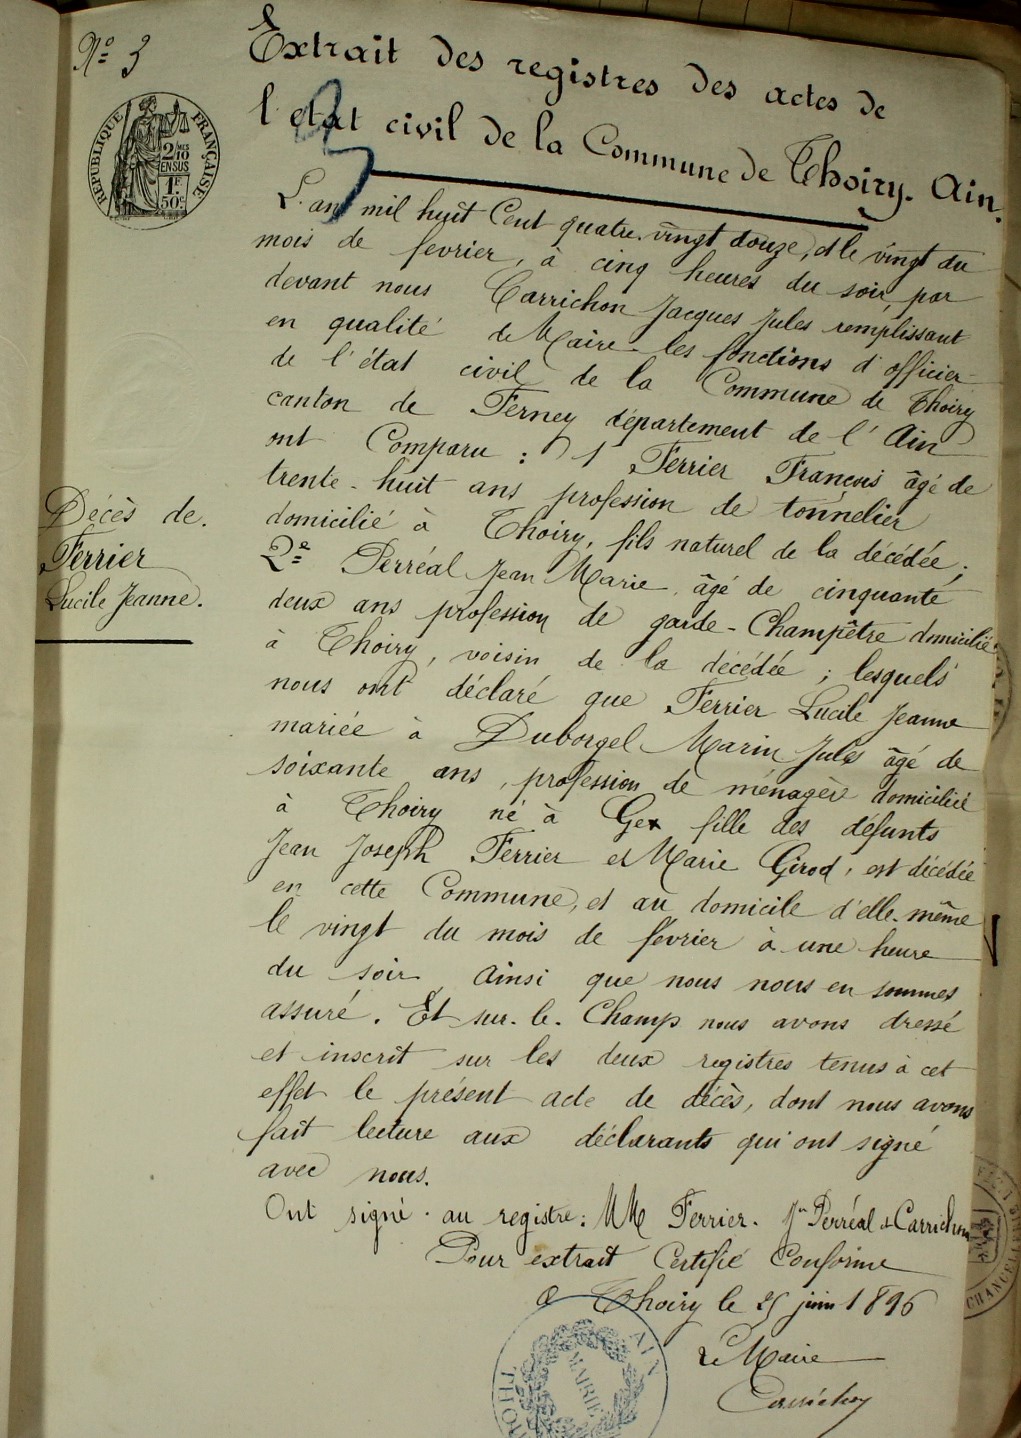 Nº 3
Extrait des registres des actes de
l'etat civil de la Commune de Thoiry. Ain.
REPUBLIQUE FRANÇAISE
2/10
EN SUS
1F
50c
L'an mil huit Cent quatre-vingt douze, et le vingt du
mois de fevrier, à cinq heures du soir, par
devant nous Carrichon Jacques Jules remplissant
en qualité de Maire les fonctions d'officier
de l'état civil de la Commune de Thoiry
canton de Ferney département de l'Ain
ont Comparu : 1 Ferrier François âgé de
trente-huit ans profession de tonnelier
domicilié à Thoiry, fils naturel de la décédée ;
2e Perréal Jean Marie, âgé de cinquante
deux ans profession de garde-Champêtre domicilié
à Thoiry, voisin de la décédée ; lesquels
nous ont déclaré que Ferrier Lucile Jeanne
mariée à Duborgel Marin Jules âgé de
soixante ans, profession de ménagère domicilié
à Thoiry né à Gex fille des défunts
Jean Joseph Ferrier et Marie Girod, est décédée
en cette Commune, et au domicile d'elle-même
le vingt du mois de fevrier à une heure
du soir ainsi que nous nous en sommes
assuré. Et sur-le-Champ nous avons dressé
et inscrit sur les deux registres tenus à cet
effet le présent acte de décès, dont nous avons
fait lecture aux déclarants qui ont signé
avec nous.
Ont signé au registre : MM Ferrier. Jn Perréal et Carrichon
Pour extrait Certifié Conforme
à Thoiry le 25 juin 1896
Le Maire
Carrichon
Décès de.
Ferrier
Lucile Jeanne.
MAIRIE
AIN
CHANCEL